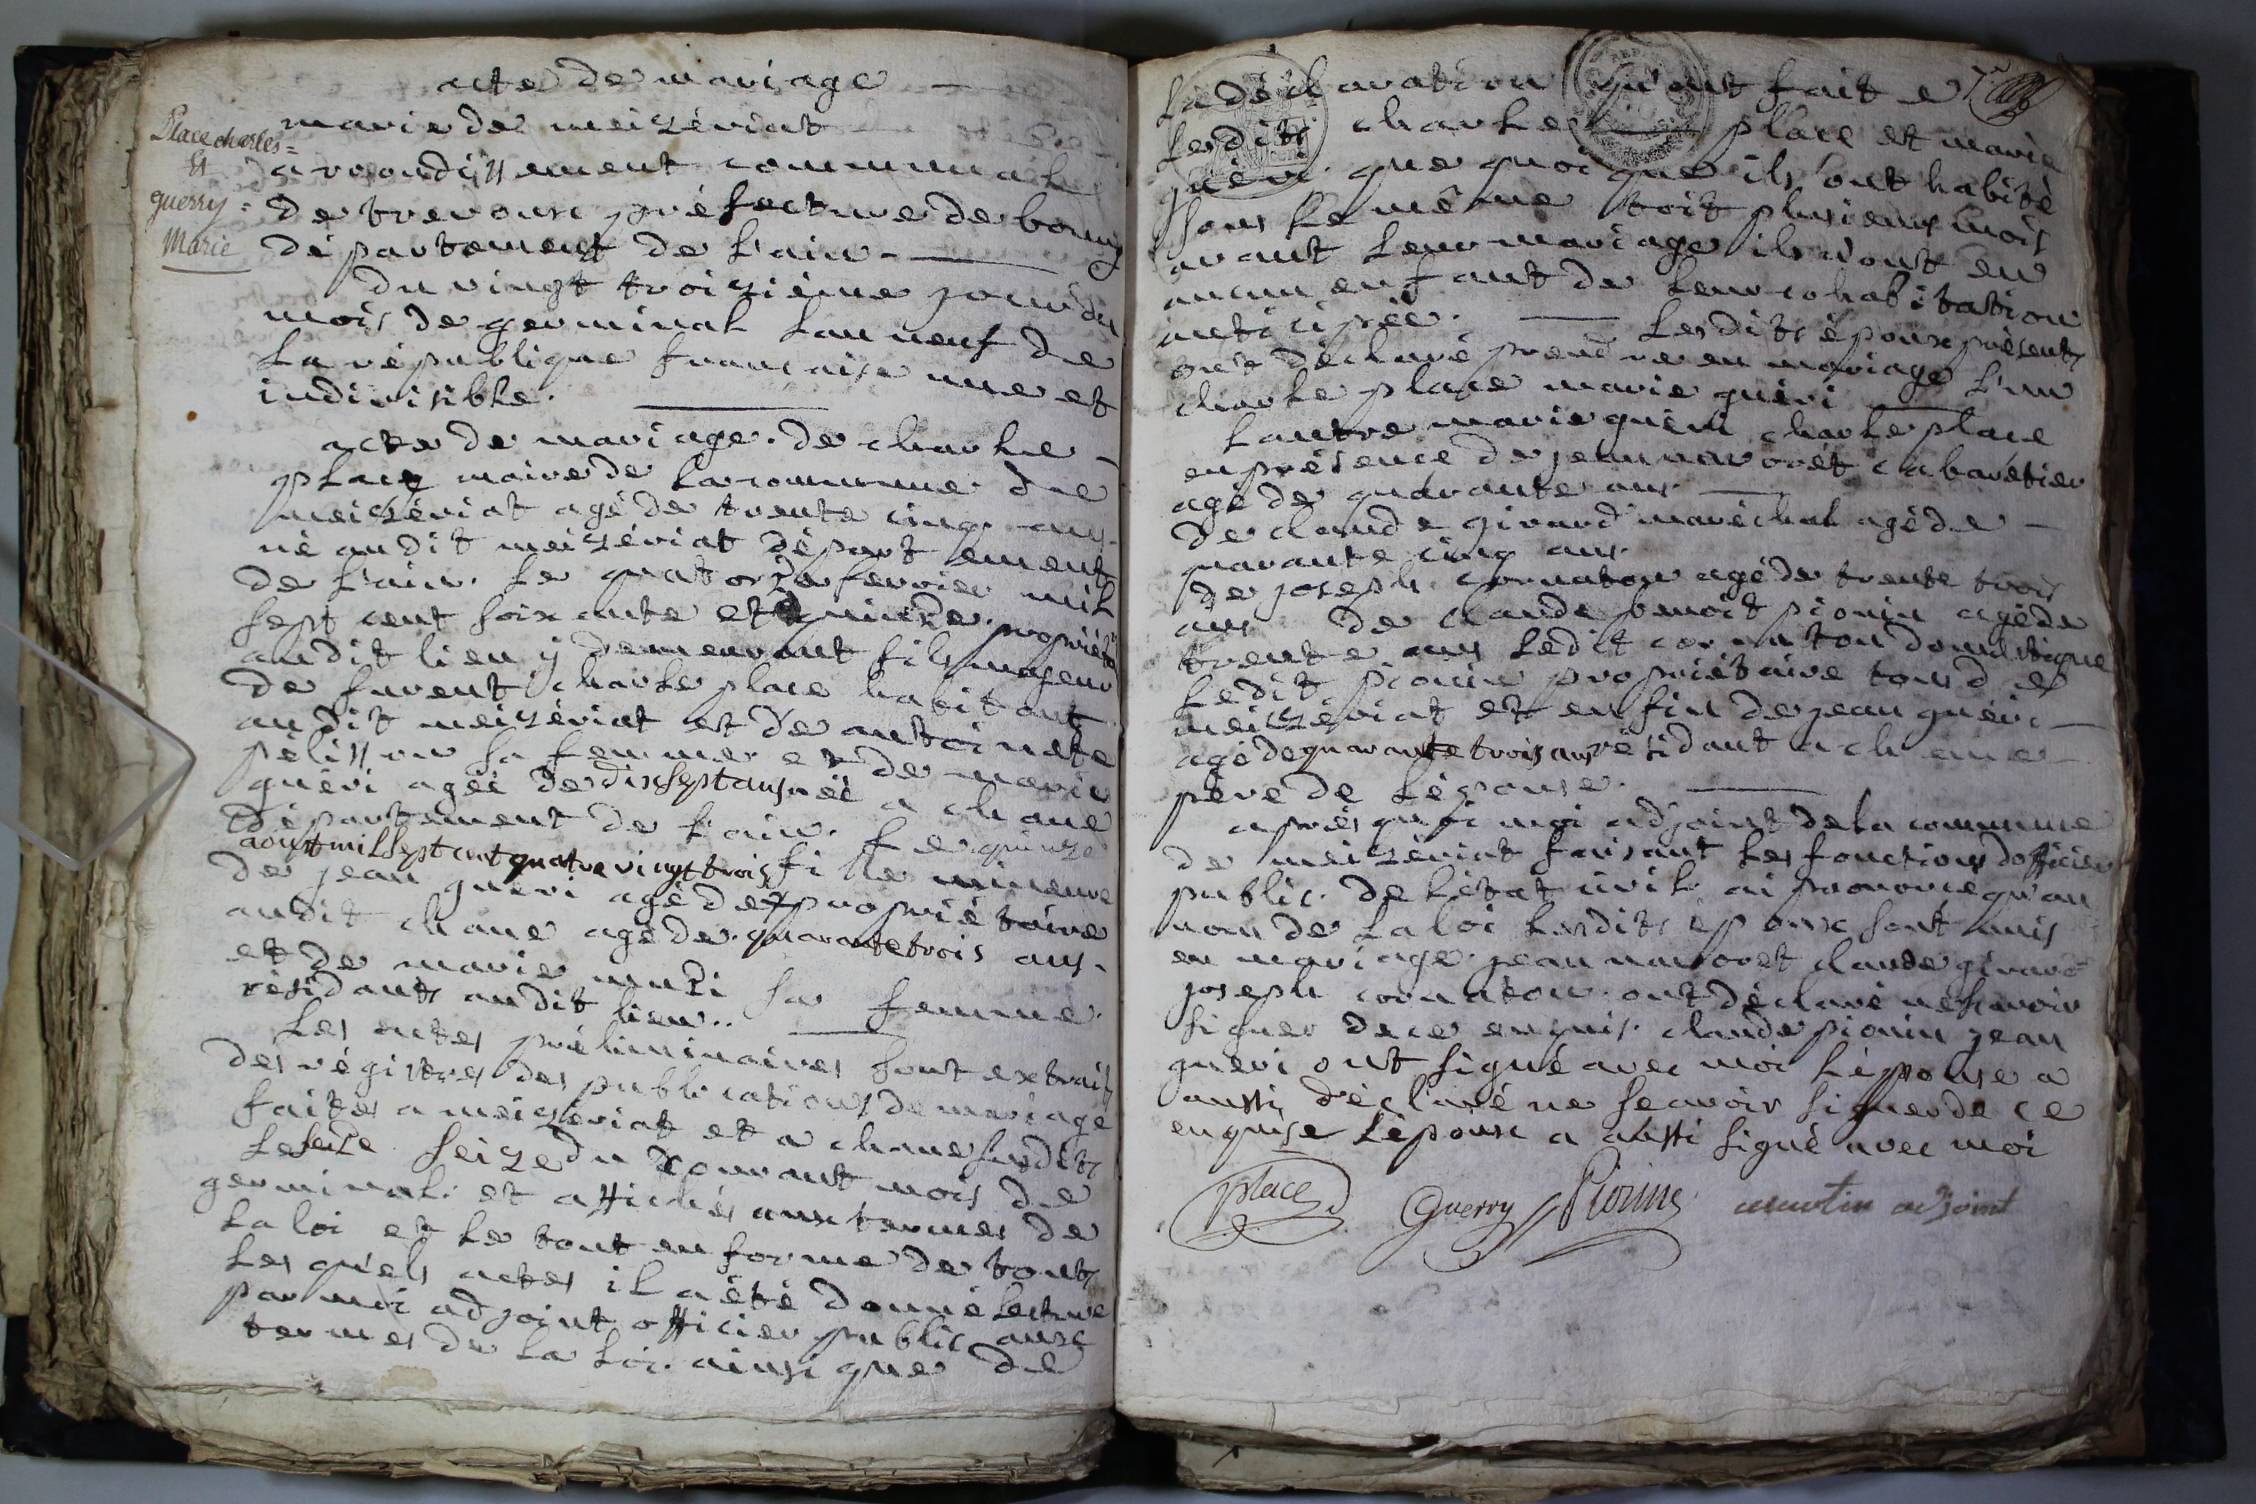 acte de mariage
Place charles =
et
guerry =
Marie
mairie de meizériat
arrondissement communal
de trevoux préfecture de bourg
département de l'ain.
du vingt troizième jour du
mois de germinal l'an neuf de
la république francaise une et
indivisible.
acte de mariage. de charle
place maire de la commune de
meizériat agé de trente cinq ans
né audit meizériat département
de l'ain. le quatorze fevrier mil
sept cent soixante et quinze. propriét
audit lieu y demeurant fils mageur
de furent charle place habitant
audit meizériat et de antoinete
pélisson sa femme et de marie
guéri agée de dix sept ans née a chane
département de l'ain. le quinze
aoust mil sept cent quatre vingt trois fille mineure
de jean guéri agé de propriétaire
audit chane agé de. quarante trois ans.
et de marie muzi sa femme.
résidants audit lieu..
Les actes préliminaires sont extraits
des régistres des publications de mariage
faites a meizériat et a chane susdits
le seize seize du courant mois de
germinal. et affichés aux termes de
la loi et le tout en forme de touts
les quels actes il a été donné lecture
par moi adjoint officier public aux
termes de la loi. ainsi que de
la déclaration qu'ont fait e
lesdits charles place et marie
guéri. que quoi que ils ont habité
sous le même toit plusieurs mois
avant leur mariage ils n'ont eu
aucun enfant de leur cohabitation
anticipée. Les dits époux présents
ont déclaré prendre en mariage l'un
charle place marie guéri
l'autre marie guéri charle place
en présence de jean navoret cabaretier
agé de quarante ans.
de claude girard maréchal agé de
quarante cinq ans.
de joseph cornaton agé de trente trois
ans de claude benoit pionin agé de
trente ans ledit cornaton domestique
ledit pionin propriétaire tous d e
meizériat et enfin de jean guéri
agé de quarante trois ans résidant a chane
pere de l'épouse.
après quoi moi adjoint de la commune
de meizériat faisant les fonctions dofficier
public. de l'état civil ai prononcé qu'au
nom de la loi lesdits époux sont unis
en mariage. jean navoret claude girard
joseph cornaton. ont déclaré ne scavoir
signer de ce enquis. claude pionin jean
guéri ont signé avec moi l'épouse a
aussi déclaré ne scavoir signer de ce
enquise l'époux a aussi signé avec moi
place Guerry Pionin martin adjoint